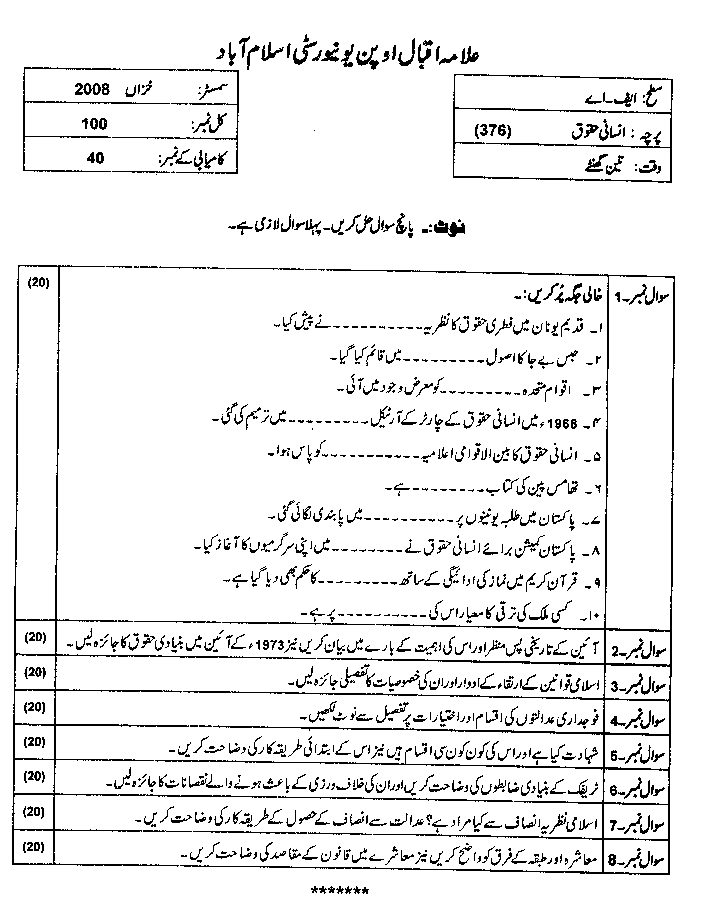 علامہ اقبال اوپن یونیورسٹی اسلام آباد
سطح: ایف۔اے
پرچہ: انسانی حقوق (376)
وقت: تین گھنٹے
سمسٹر: خزاں 2008
کل نمبر: 100
کامیابی کے نمبر: 40
نوٹ:۔ پانچ سوال حل کریں۔ پہلا سوال لازمی ہے۔
سوال نمبر۔1 خالی جگہ پُر کریں:۔ (20)
۱۔ قدیم یونان میں فطری حقوق کا نظریہ ---------- نے پیش کیا۔
۲۔ حبس بے جا کا اصول --------- میں قائم کیا گیا۔
۳۔ اقوام متحدہ --------- کو معرض وجود میں آئی۔
۴۔ 1966ء میں انسانی حقوق کے چارٹر کے آرٹیکل --------- میں ترمیم کی گئی۔
۵۔ انسانی حقوق کا بین الاقوامی اعلامیہ ---------- کو پاس ہوا۔
۶۔ تھامس پین کی کتاب -------- ہے۔
۷۔ پاکستان میں طلبہ یونینوں پر ---------- میں پابندی لگائی گئی۔
۸۔ پاکستان کمیشن برائے انسانی حقوق نے -------- میں اپنی سرگرمیوں کا آغاز کیا۔
۹۔ قرآن کریم میں نماز کی ادائیگی کے ساتھ --------- کا حکم بھی دیا گیا ہے۔
۱۰۔ کسی ملک کی ترقی کا معیار اس کی --------- پر ہے۔
سوال نمبر۔2 آئین کے تاریخی پس منظر اور اس کی اہمیت کے بارے میں بیان کریں نیز 1973ء کے آئین میں بنیادی حقوق کا جائزہ لیں۔ (20)
سوال نمبر۔3 اسلامی قوانین کے ارتقاء کے ادوار اور ان کی خصوصیات کا تفصیلی جائزہ لیں۔ (20)
سوال نمبر۔4 فوجداری عدالتوں کی اقسام اور اختیارات پر تفصیل سے نوٹ لکھیں۔ (20)
سوال نمبر۔5 شہادت کیا ہے اور اس کی کون کون سی اقسام ہیں نیز اس کے ابتدائی طریقہ کار کی وضاحت کریں۔ (20)
سوال نمبر۔6 ٹریفک کے بنیادی ضابطوں کی وضاحت کریں اور ان کی خلاف ورزی کے باعث ہونے والے نقصانات کا جائزہ لیں۔ (20)
سوال نمبر۔7 اسلامی نظریہ انصاف سے کیا مراد ہے؟ عدالت سے انصاف کے حصول کے طریقہ کار کی وضاحت کریں۔ (20)
سوال نمبر۔8 معاشرہ اور طبقہ کے فرق کو واضح کریں نیز معاشرے میں قانون کے مقاصد کی وضاحت کریں۔ (20)
*******